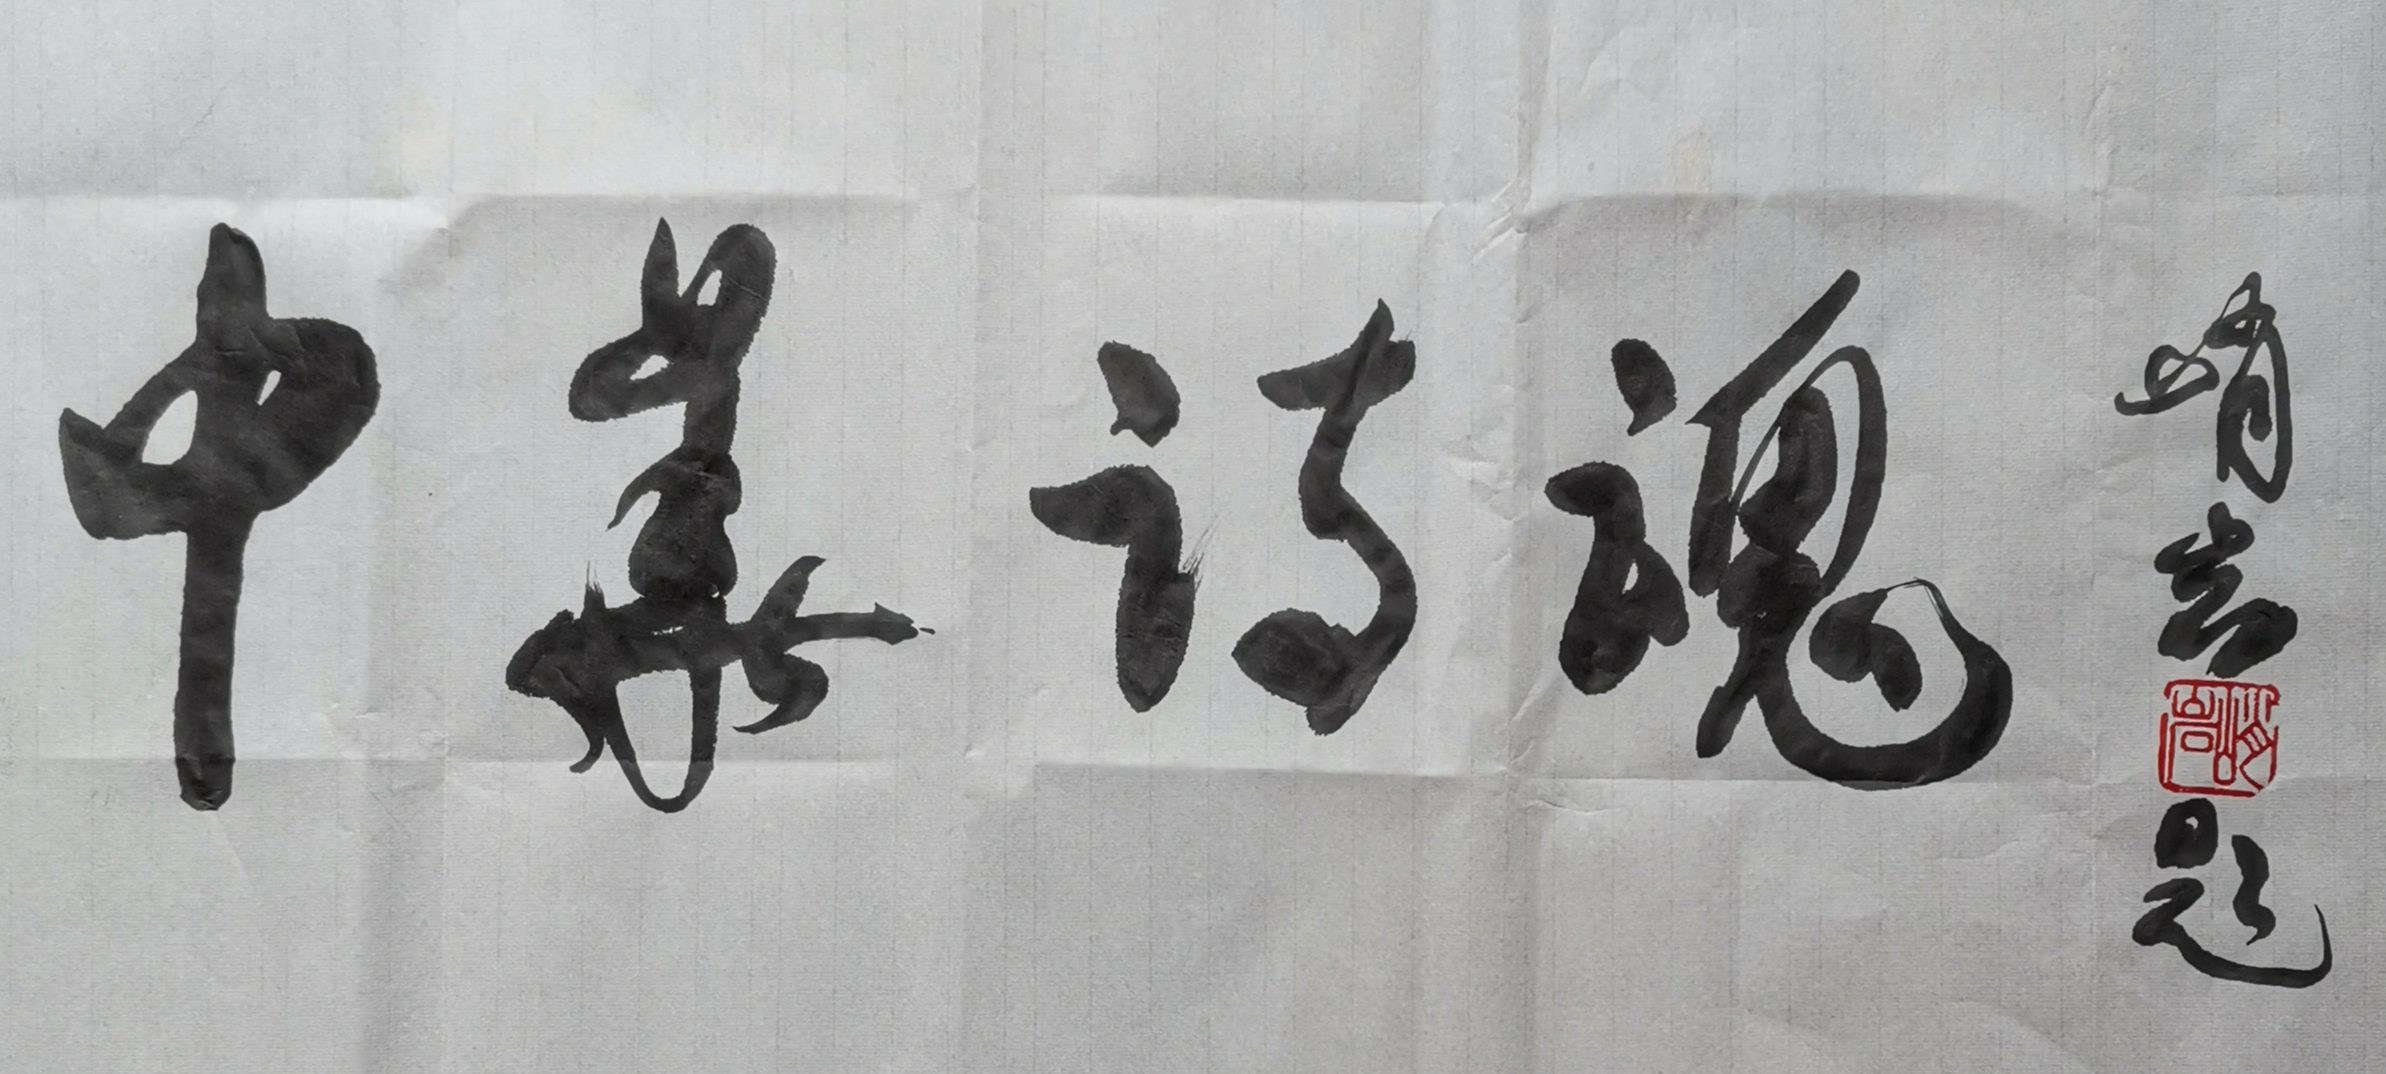 中华诗魂
峭岩
题